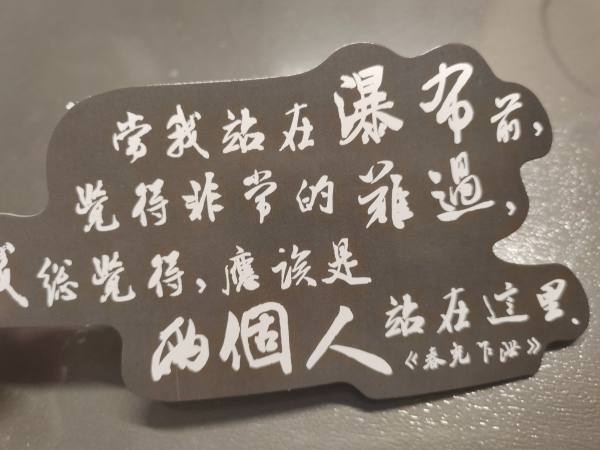 當我站在瀑布前,
覺得非常的難過,
我總覺得,應該是
兩個人站在這里、
《春光下泄》